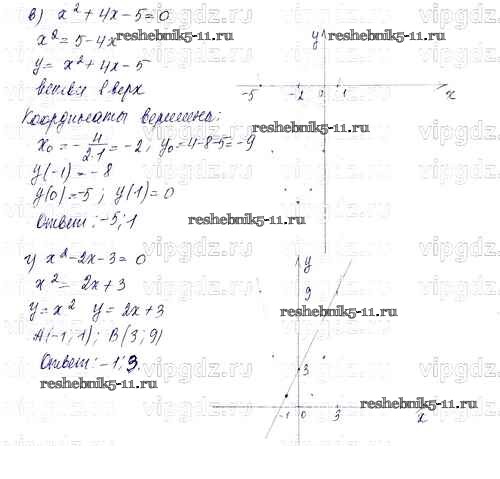 в) x² + 4x - 5 = 0
x² = 5 - 4x
y = x² + 4x - 5
ветви вверх
Координаты вершины:
x₀ = - 4/2·1 = -2; y₀ = 4-8-5 = -9
y(-1) = -8
y(0) = -5; y(1) = 0
Ответ: -5; 1
y
-5 -2 0 1 x
г) x² - 2x - 3 = 0
x² = 2x + 3
y = x² y = 2x + 3
A(-1; 1); B(3; 9)
Ответ: -1; 3.
y
9
3
-1 0 3 x
reshebnik5-11.ru
reshebnik5-11.ru
reshebnik5-11.ru
reshebnik5-11.ru
reshebnik5-11.ru
reshebnik5-11.ru
reshebnik5-11.ru
vipgdz.ru